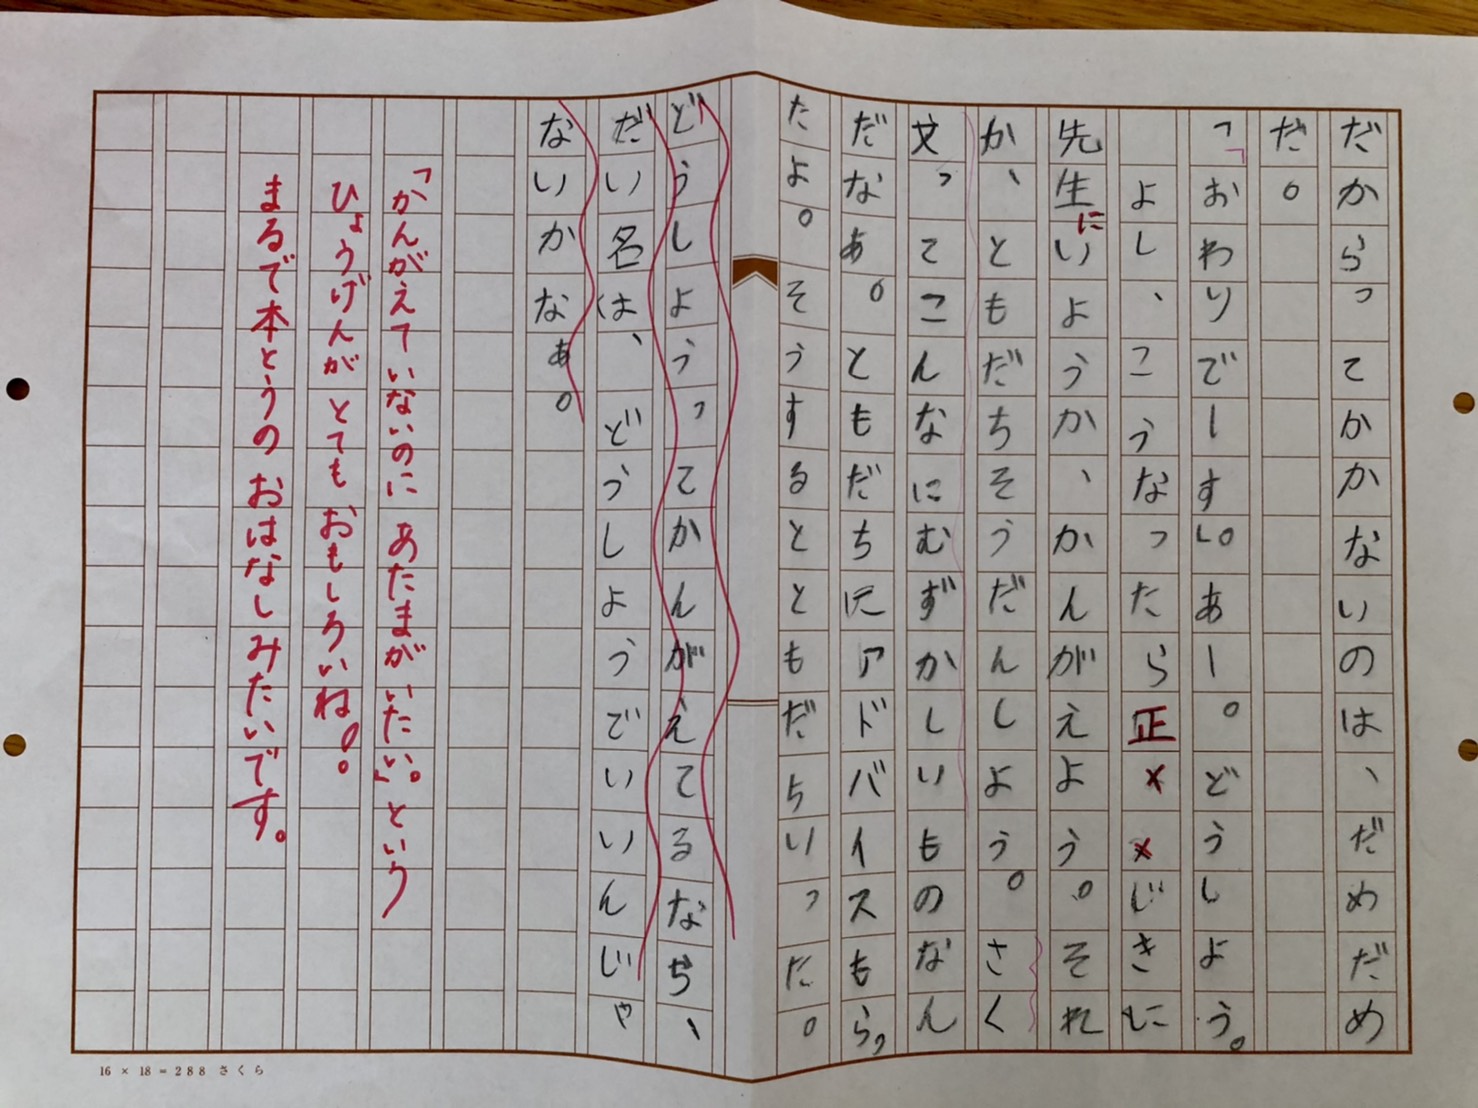 だからってかかないのは、だめだめ
だ。
「おわりでーす」。あー。どうしよう。
よし、こうなったら正××じきに
先生にいようか、かんがえよう。それ
か、ともだちそうだんしよう。さく
文ってこんなにむずかしいものなん
だなあ。ともだちにアドバイスもらっ
たよ。そうするとともだちいった。
どうしようってかんがえてるなぢ、
だい名は、どうしようでいいんじゃ
ないかなぁ。
「かんがえていないのにあたまがいたい。」という
ひょうげんがとてもおもしろいね!。
まるで本とうのおはなしみたいです。
16 × 18 = 288 さくら